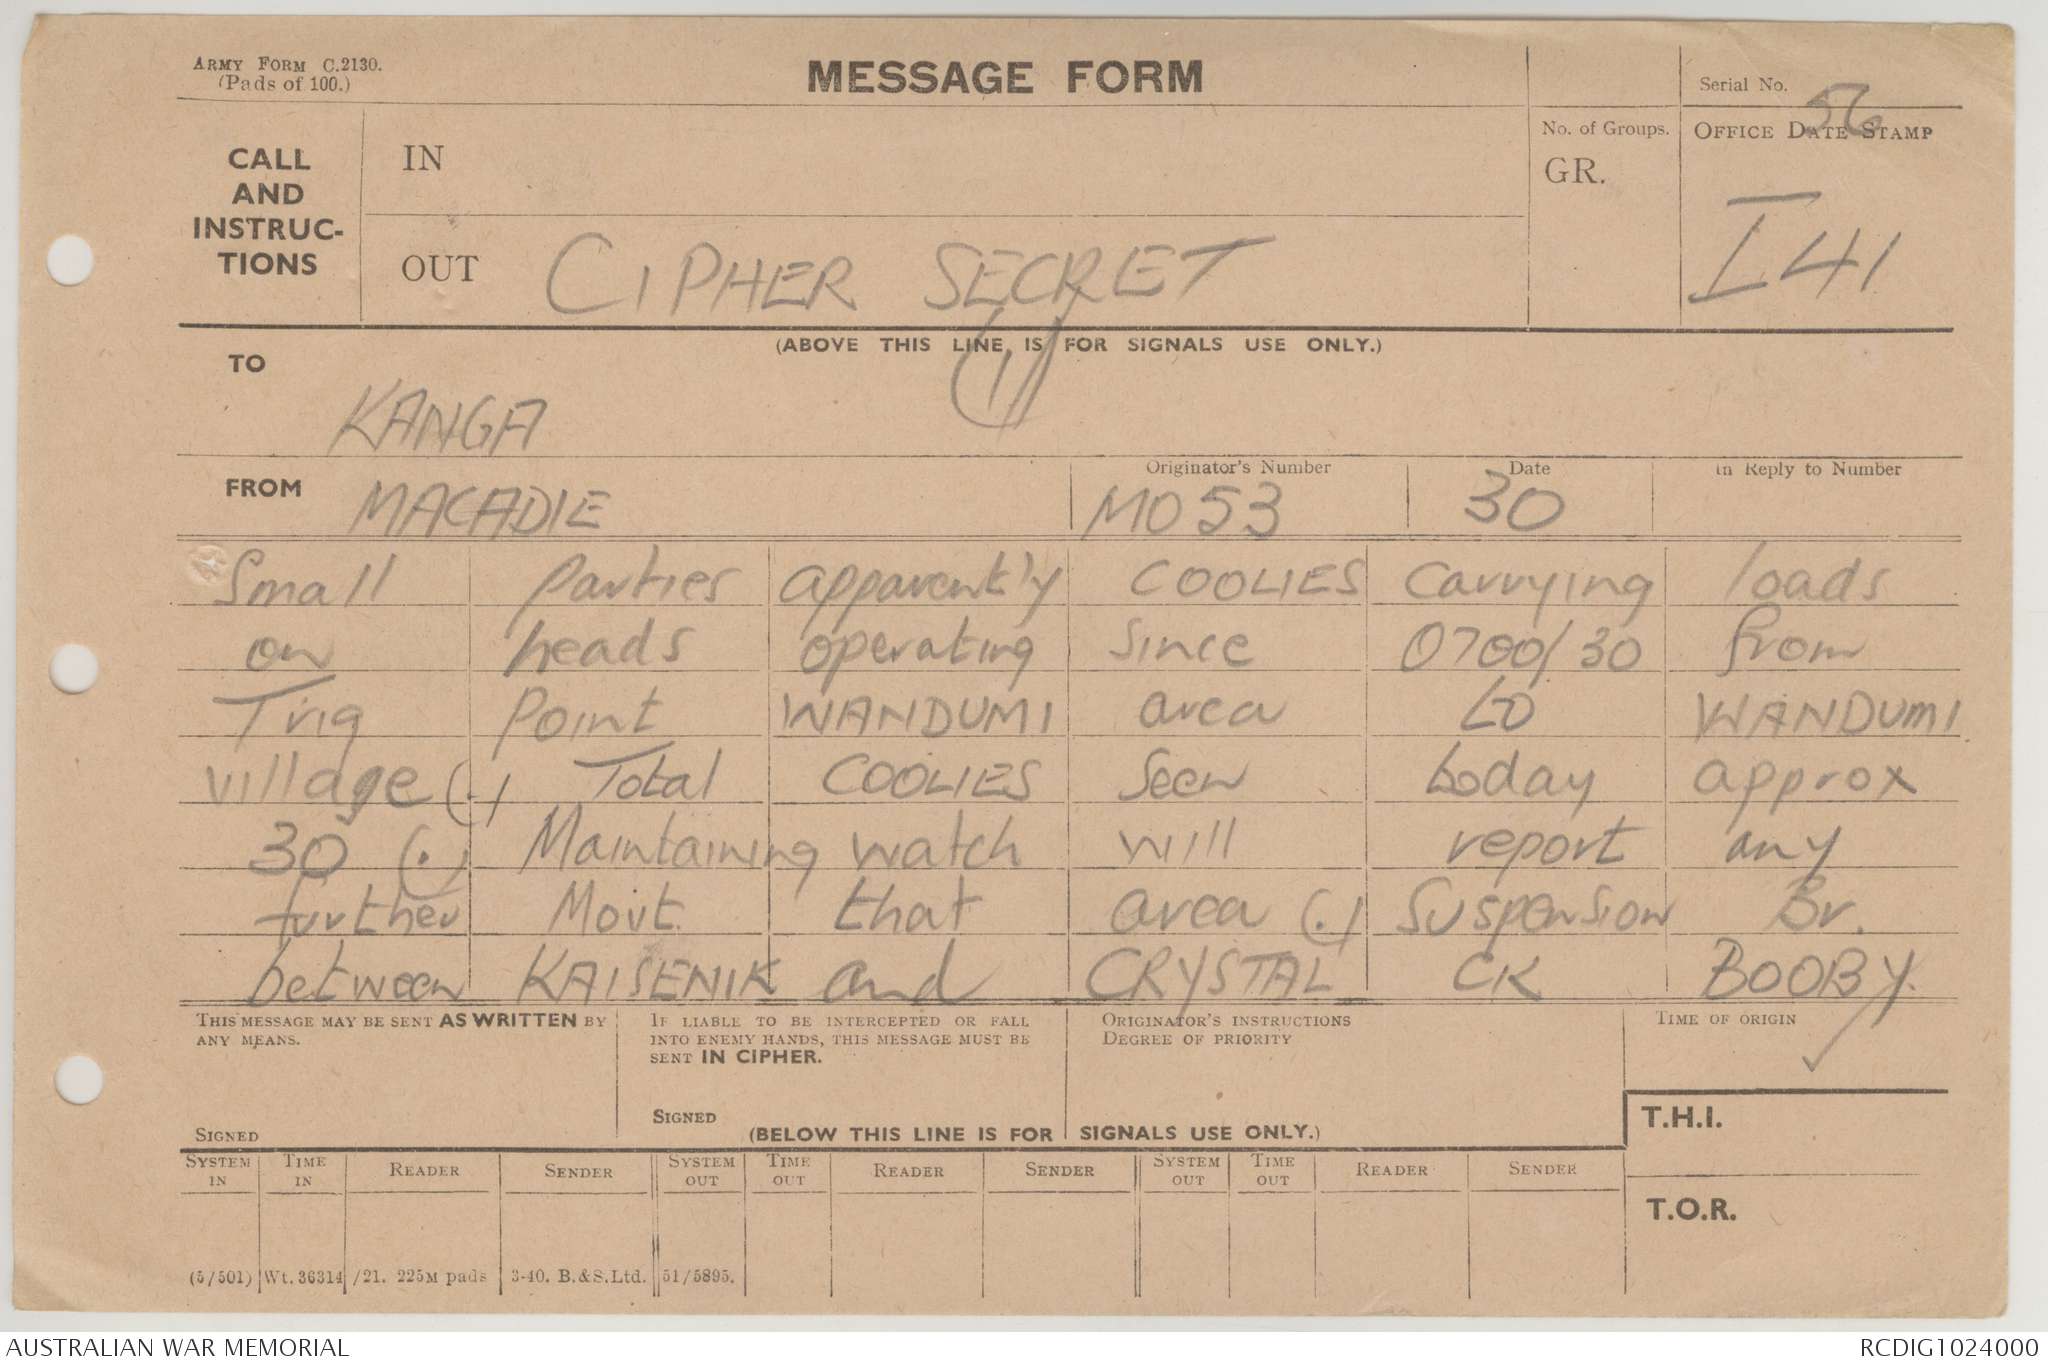 ARMY FORM C.2130.
(Pads of 100.)
MESSAGE FORM
Serial No. 56
CALL AND INSTRUC-TIONS
IN
No. of Groups.
GR.
OFFICE DATE STAMP
I 41
OUT CIPHER SECRET
(ABOVE THIS LINE IS FOR SIGNALS USE ONLY.)
TO
KANGA
FROM MACADIE
Originator's Number MO 53
Date 30
In Reply to Number
Small parties apparently COOLIES carrying loads
on heads operating since 0700/30 from
Trig Point WANDUMI area to WANDUMI
village (.) Total COOLIES seen today approx
30 (.) Maintaining watch will report any
further Movt. that area (.) Suspension Br.
between KAISENIK and CRYSTAL CK BOOBY.
THIS MESSAGE MAY BE SENT AS WRITTEN BY
ANY MEANS.
SIGNED
IF LIABLE TO BE INTERCEPTED OR FALL
INTO ENEMY HANDS, THIS MESSAGE MUST BE
SENT IN CIPHER.
SIGNED
ORIGINATOR'S INSTRUCTIONS
DEGREE OF PRIORITY
TIME OF ORIGIN
(BELOW THIS LINE IS FOR SIGNALS USE ONLY.)
T.H.I.
SYSTEM IN TIME IN READER SENDER SYSTEM OUT TIME OUT READER SENDER SYSTEM OUT TIME OUT READER SENDER
T.O.R.
(5/501) Wt. 36314/21. 225M pads 3-40. B.&S.Ltd. 51/5895.
AUSTRALIAN WAR MEMORIAL
RCDIG1024000